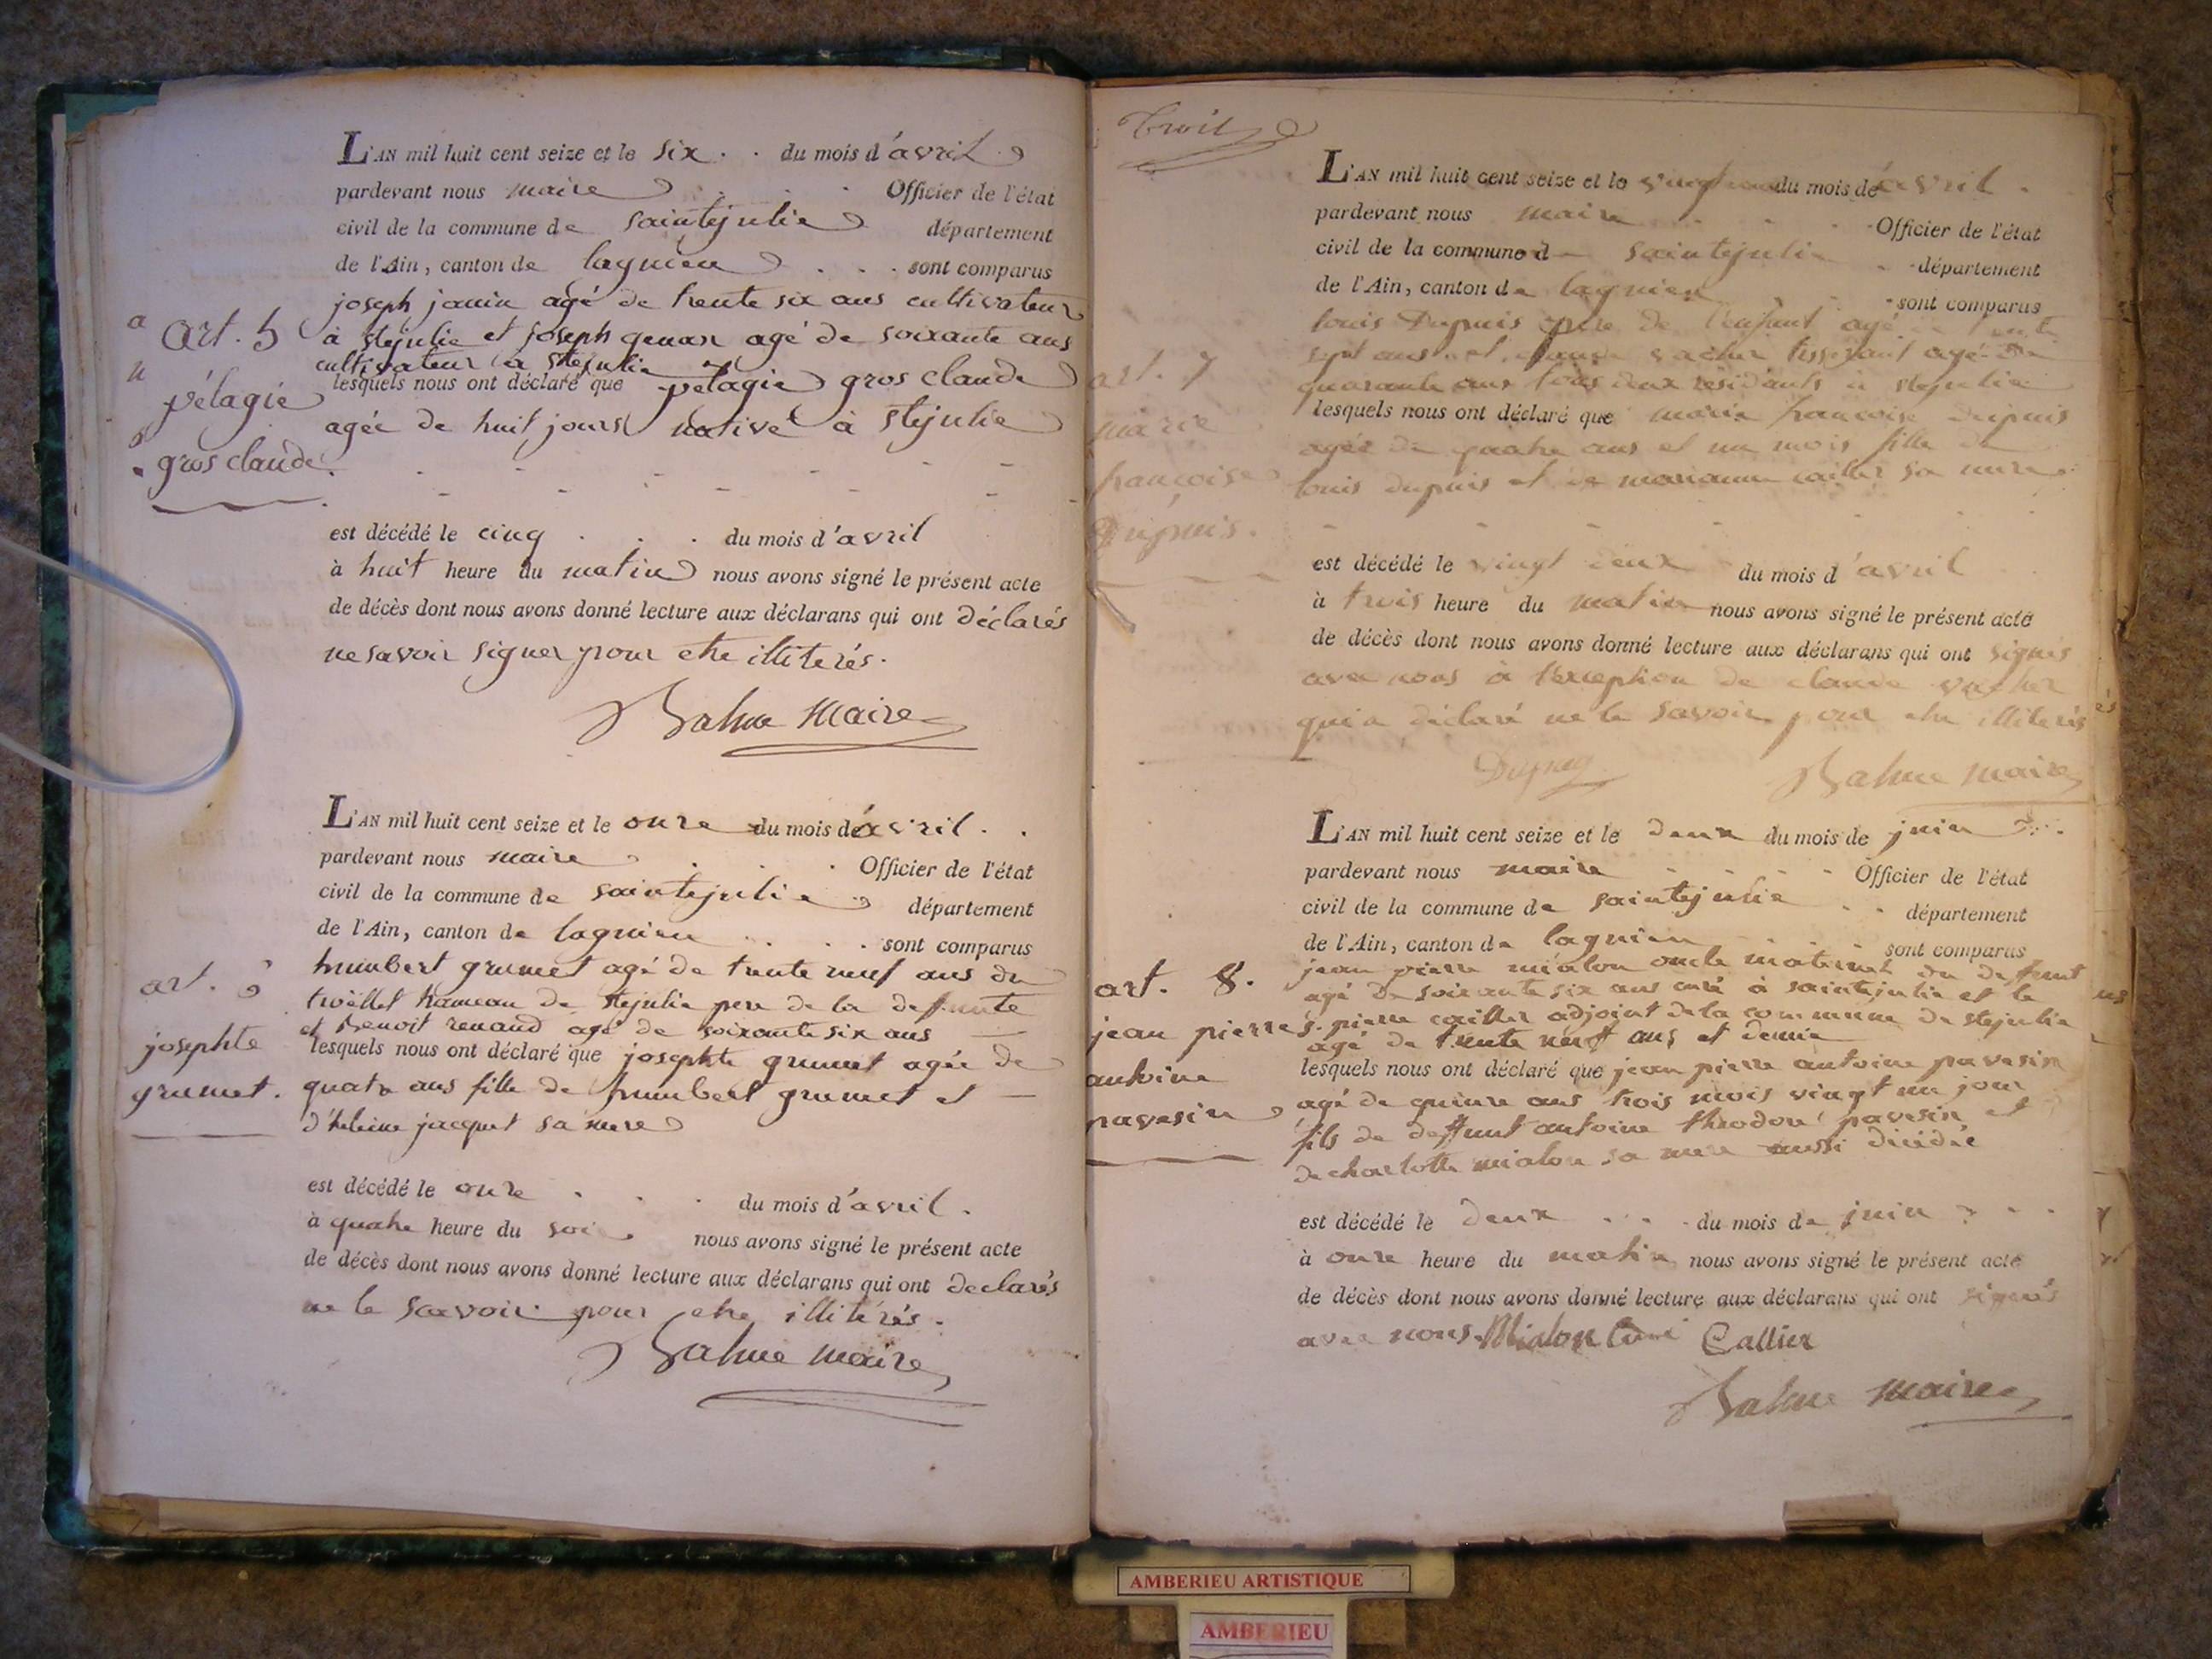 L'AN mil huit cent seize et le six du mois d'avril
pardevant nous maire Officier de l'état
civil de la commune de saintejulie département
de l'Ain, canton de lagnieu sont comparus
joseph janin agé de trente six ans cultivateur
à stejulie et joseph genar agé de soixante ans
cultivateur à stejulie
lesquels nous ont déclaré que pélagie gros claude
agée de huit jours native à stejulie
art. 5
pélagie
gros claude
est décédé le cinq du mois d'avril
à huit heure du matin nous avons signé le présent acte
de décès dont nous avons donné lecture aux déclarans qui ont déclarés
ne savoir signer pour etre illiterés.
Balme maire
L'AN mil huit cent seize et le onze du mois de avril
pardevant nous maire Officier de l'état
civil de la commune de saintejulie département
de l'Ain, canton de lagnieu sont comparus
humbert grumet agé de trente neuf ans du
trollet hameau de stejulie pere de la deffunte
et Benoit renaud agé de soixante six ans
lesquels nous ont déclaré que josephte grumet agée de
quatre ans fille de humbert grumet et
d'heleine jacquet sa mere
art.
josephte
grumet.
est décédé le onze du mois d'avril.
à quatre heure du soir nous avons signé le présent acte
de décès dont nous avons donné lecture aux déclarans qui ont declarés
ne le savoir pour etre illitérés.
Balme maire
trois
L'AN mil huit cent seize et le vingt du mois de avril
pardevant nous maire Officier de l'état
civil de la commune d saintejulie département
de l'Ain, canton de lagnieu sont comparus
louis Dupuis pere de l'enfant agé trente
sept ans et claude vacher tisserant agé de
quarante ans tous deux résidants à stejulie
lesquels nous ont déclaré que marie francoise dupuis
agée de quatre ans et un mois fille de
louis dupuis et de marianne caillet sa mere
art. 7
marie
francoise
Dupuis.
est décédé le vingt deux du mois d'avril
à trois heure du matin nous avons signé le présent acte
de décès dont nous avons donné lecture aux déclarans qui ont signés
avec nous à l'exception de claude vacher
qui a déclaré ne le savoir pour etre illiterés
Dupuy
Balme maire
L'AN mil huit cent seize et le deux du mois de juin
pardevant nous maire Officier de l'état
civil de la commune de saintejulie département
de l'Ain, canton de lagnieu sont comparus
jean pierre mialon oncle maternel du deffunt
agé de soixante six ans curé à saintejulie et le
s. pierre caillet adjoint de la commune de stejulie
agé de trente neuf ans et demie
lesquels nous ont déclaré que jean pierre antoine pavesin
agé de quinze ans trois mois vingt un jour
fils de deffunt antoine théodore pavesin et
de charlotte mialon sa mere aussi décédée
art. 8.
jean pierre
antoine
pavesin
est décédé le deux du mois de juin
à onze heure du matin nous avons signé le présent acte
de décès dont nous avons donné lecture aux déclarans qui ont signés
avec nous. Mialon Curé Callier
Balme maire
AMBERIEU ARTISTIQUE
AMBERIEU